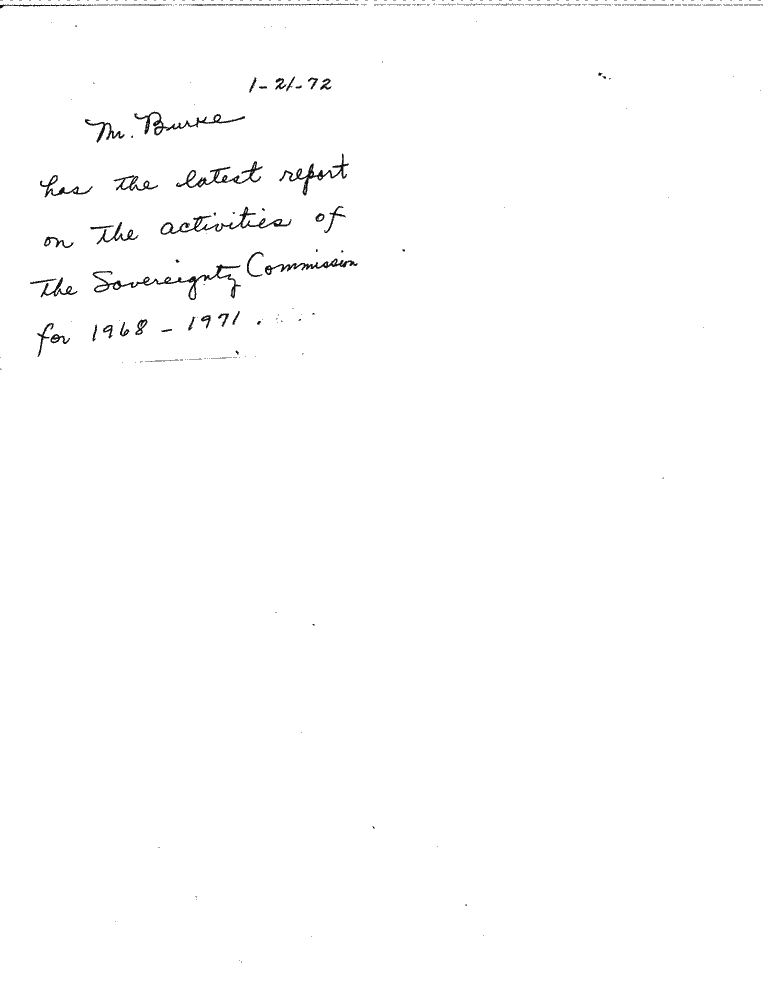 1-21-72
Mr. Burke
has the latest report
on the activities of
the Sovereignty Commission
for 1968 - 1971.